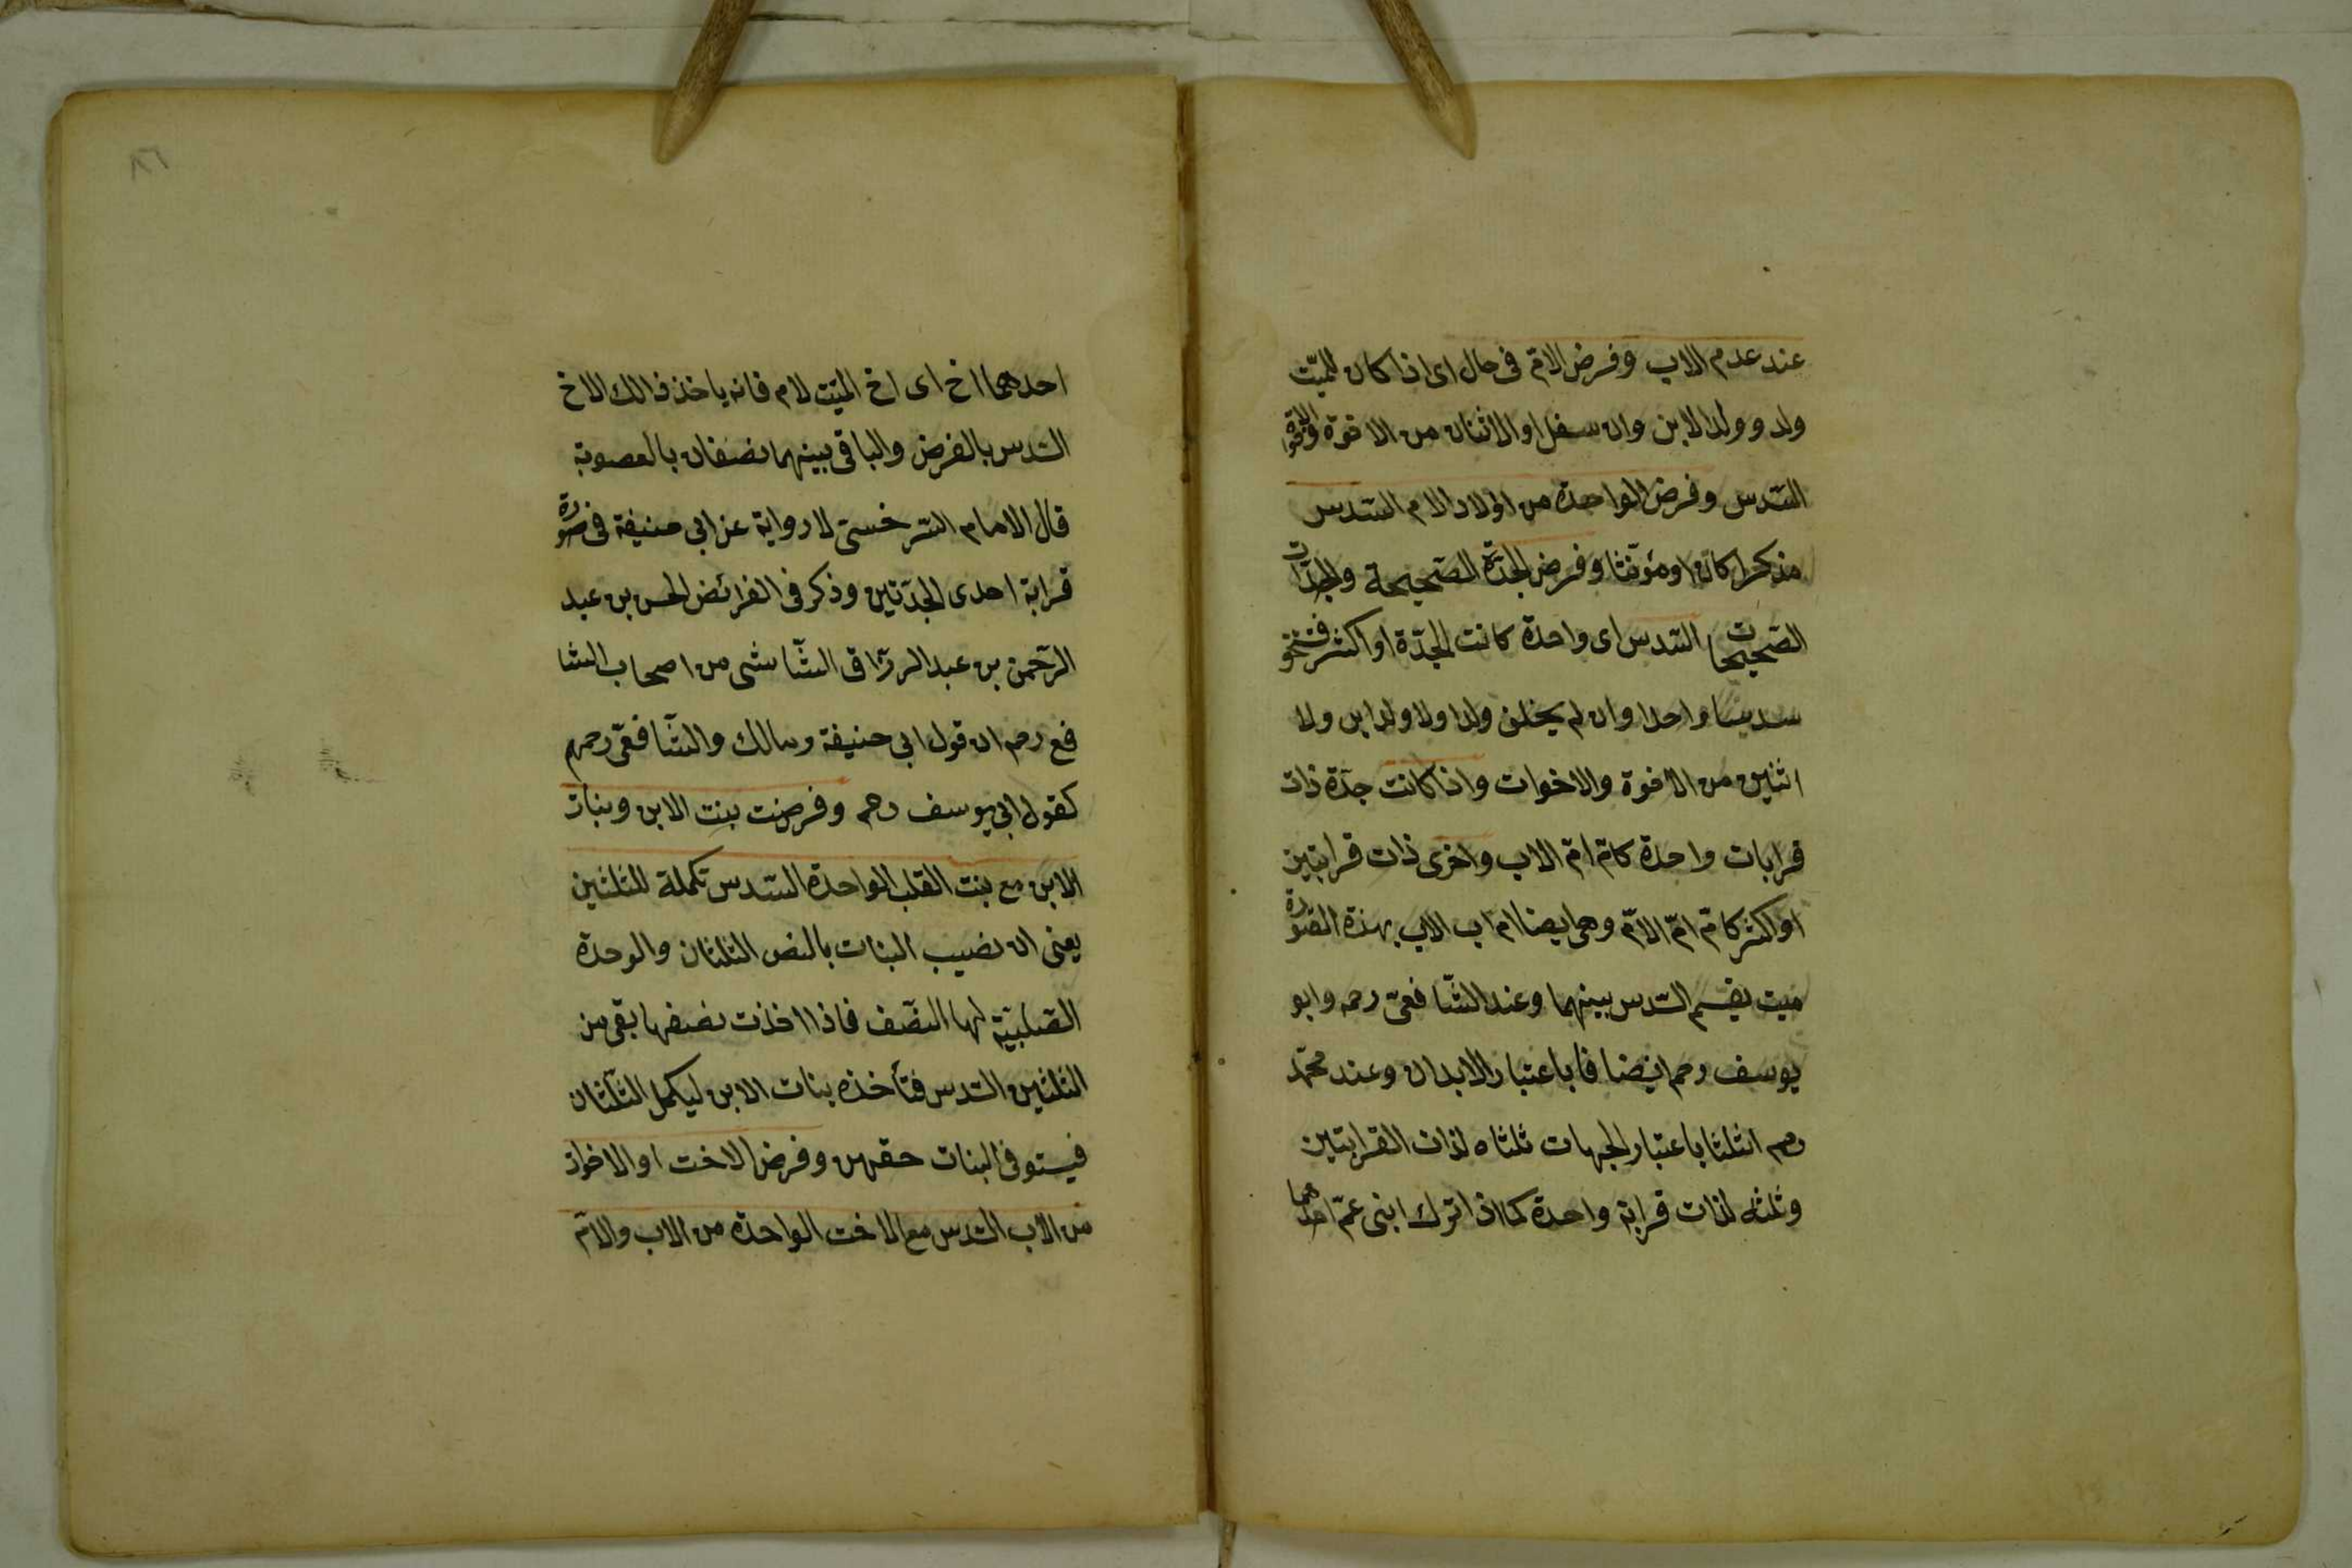 عند عدم الاب وفرض الامّ فى حال اى اذا كان للميّت
ولد وولد الابن وان سفل او الاثنان من الاخوة والاخوة
السّدس وفرض الواحدة من اولاد الام السّدس
مذكرا كان او مؤنّثا وفرض الجدّة الصّحيحة والجدّات
الصّحيحات السّدس اى واحدة كانت الجدّة او اكثر
سدسا واحدا وان لم يخلف ولدا ولا ولد ابن ولا
اثنين من الاخوة والاخوات واذا كانت جدّة ذات
قرابات واحدة كامّ امّ الاب واخرى ذات قرابتين
او اكثر كامّ امّ الامّ وهى ايضا ام اب الاب بهذه الصّورة
ميت يقسم السّدس بينهما وعند الشّافعىّ رحمه وابو
يوسف رحم ايضا فا باعتبار الابدان وعند محمّد
رحم اثلثا باعتبار الجهات ثلثاه لذات القرابتين
وثلثه لذات قرابة واحدة كما اذا ترك ابنى عمّ احدهما
احدهما اخ اى اخ الميّت لام فانه ياخذ ذالك الاخ
السّدس بالفرض والباقى بينهما نصفان بالعصوبة
قال الامام السّرخستى لا رواية عن ابى حنيفة فى صورة
قرابة احدى الجدّتين وذكر فى الفرائض الحسن بن عبد
الرّحمن بن عبد الرزّاق الشّاشى من اصحاب الشا
فع رحم ان قول ابى حنيفة ومالك والشّافعىّ رحمهم
كقول ابى يوسف رحم وفرضت بنت الابن وبنات
الابن مع بنت القلب الواحدة السّدس تكملة للثلثين
يعنى ان نصيب البنات بالنص الثلثان والوحدة
الصّلبيّة لها النصّف فاذا اخذت نصفها بقى من
الثلثين السّدس فتأخذه بنات الابن ليكمل الثلّثان
فيستوفى البنات حقهن وفرض الاخت او الاخوات
من الاب السّدس مع الاخت الواحدة من الاب والامّ
٨٦